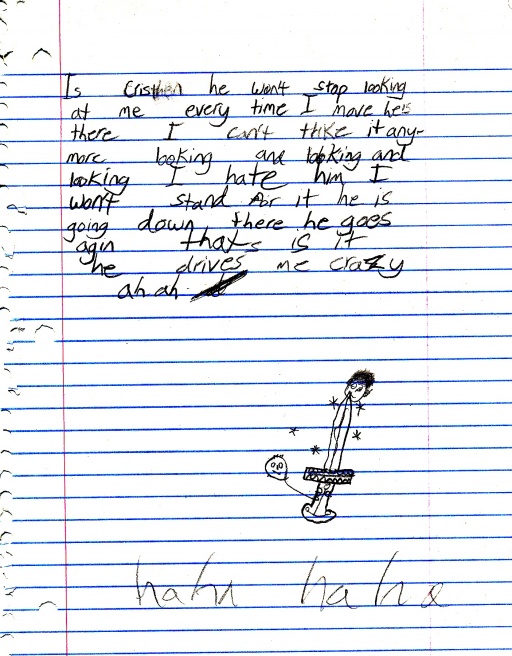 Is Cristhen he won't stop looking
at me every time I move he's
there I can't thke it any-
more looking and looking and
looking I hate him I
won't stand for it he is
going down there he goes
agin thats is it
he drives me crazy
ah ah
haha haha